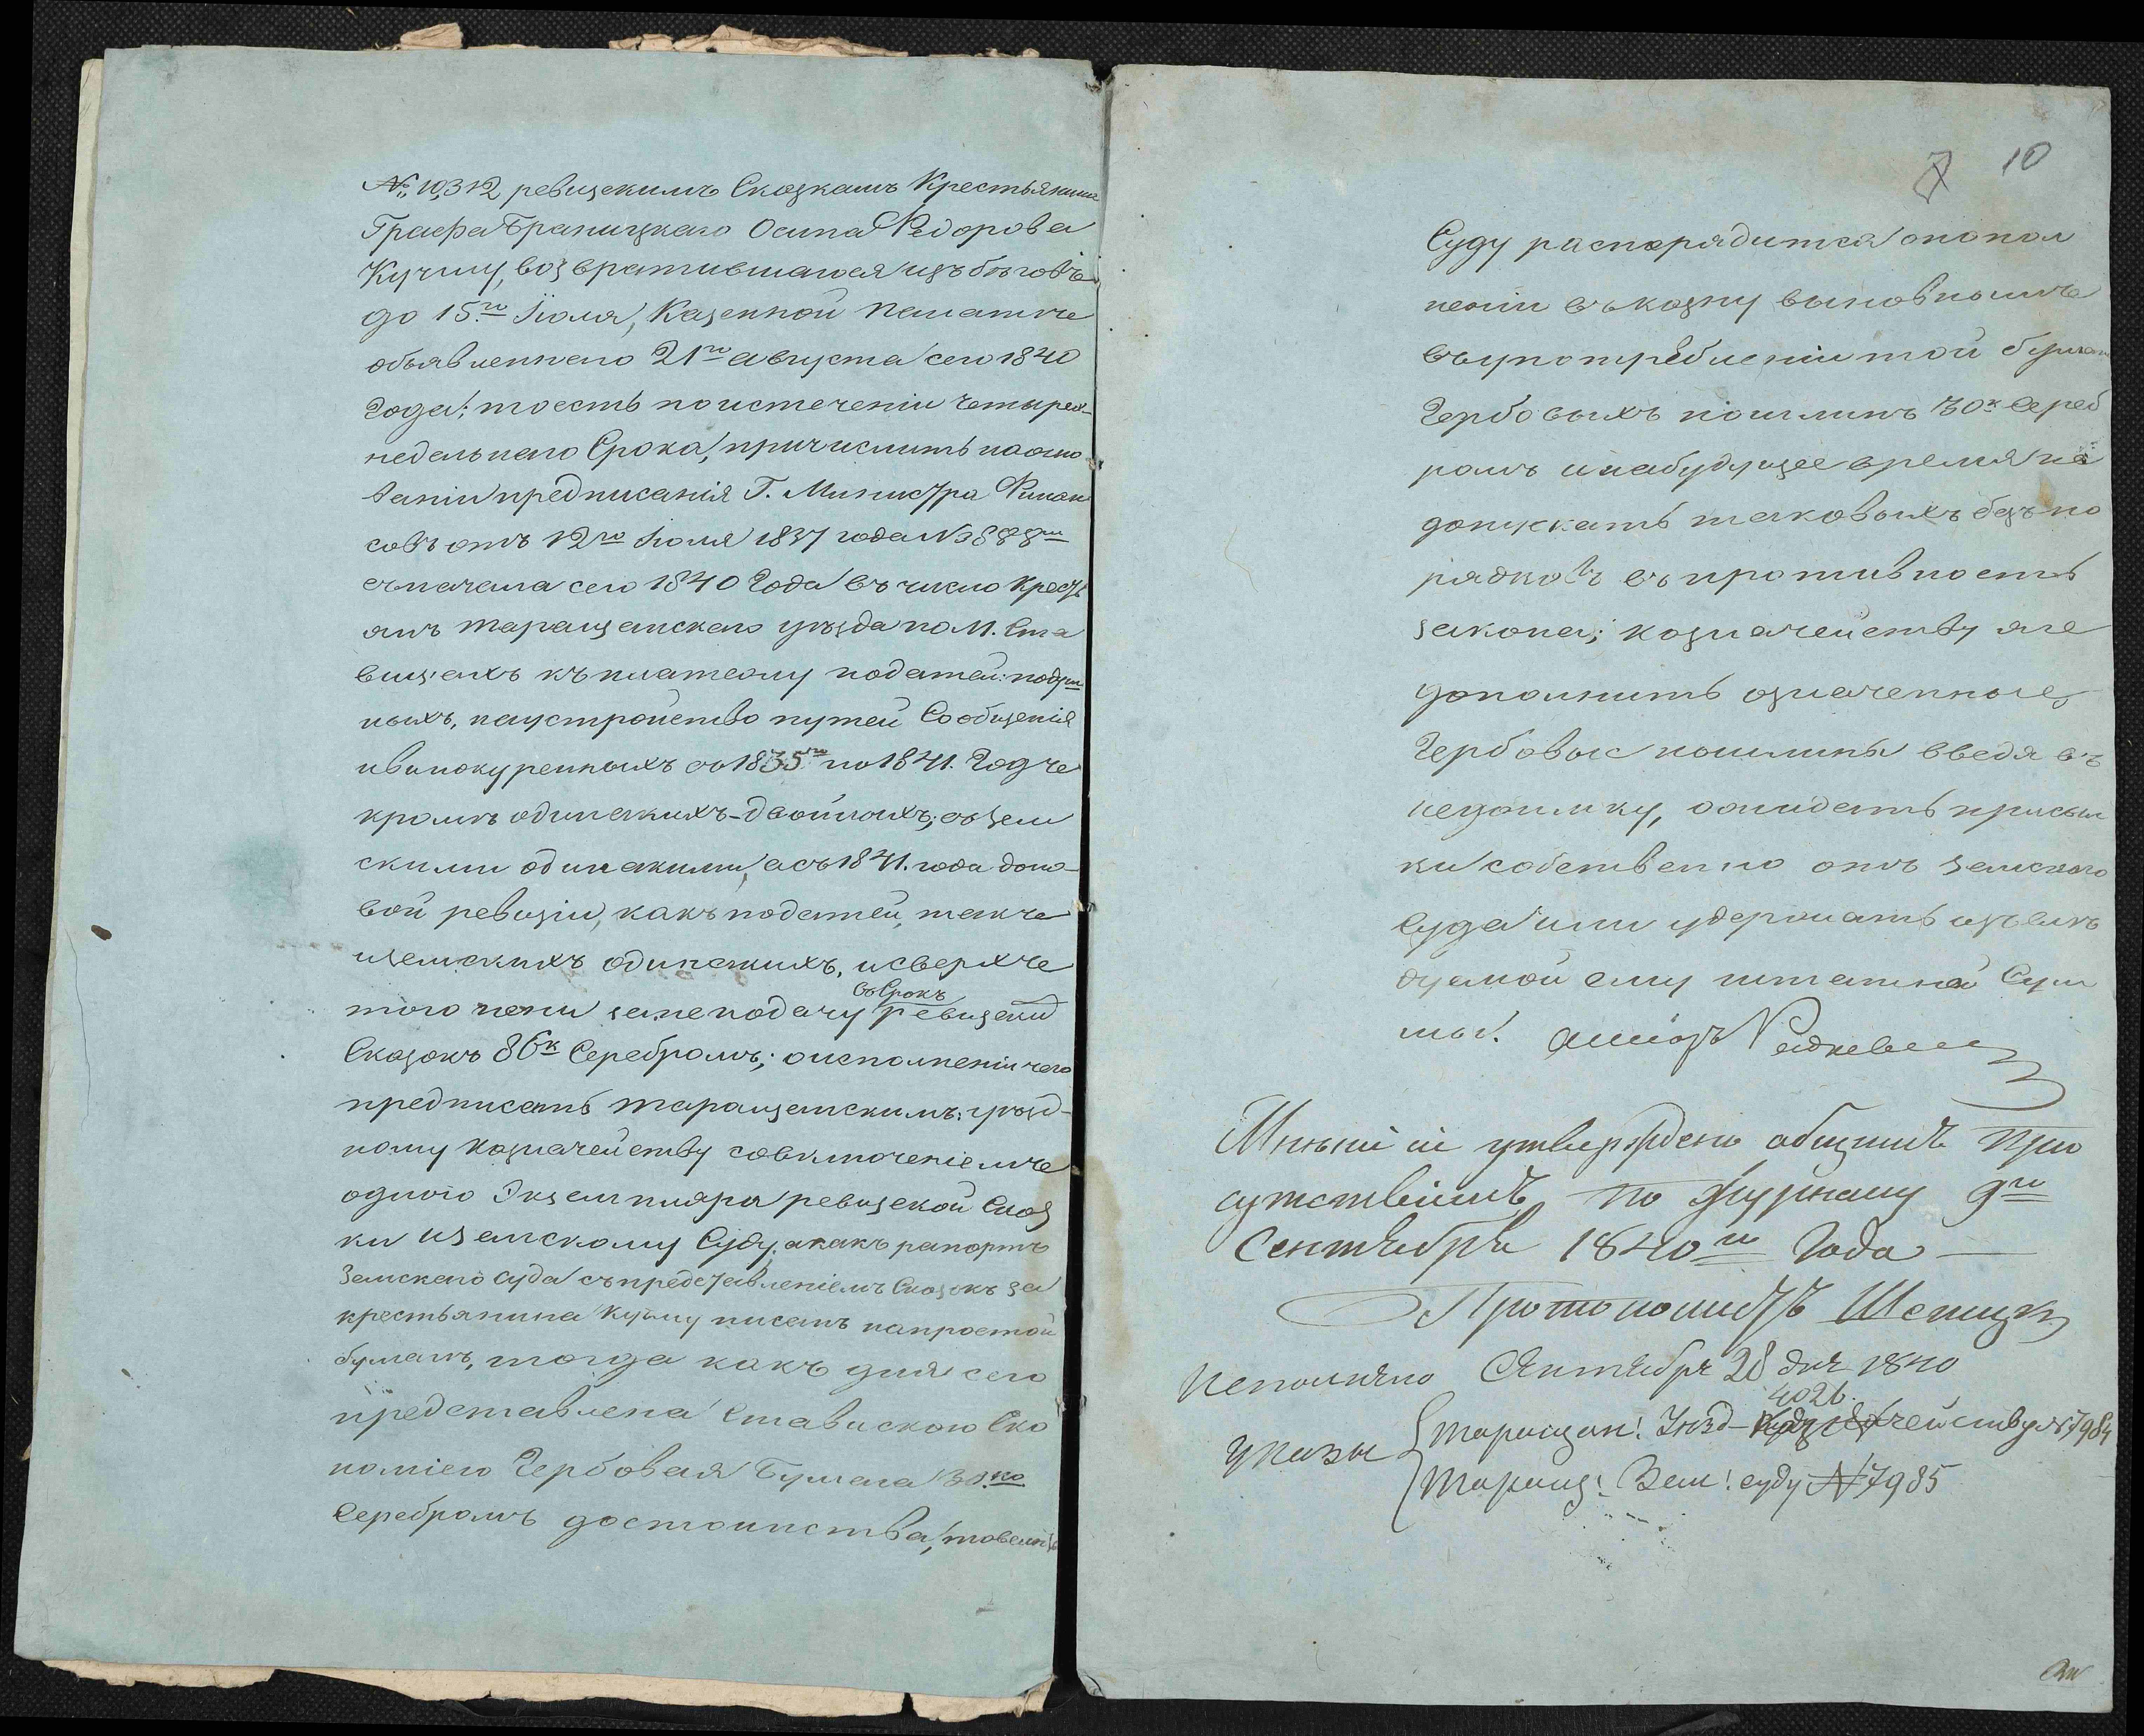 № 10,312 ревизскимъ Сказкамъ Крестьянина
Графа Браницкаго Осипа Федорова
Кучму, возвратившагося изъ бѣговъ
до 15го Іюля, Казенной Палатѣ
объявленнаго 21го августа сего 1840
Года; тоесть по истеченіи четырех-
недельнаго Срока, причислить на осно
ваніи предписанія Г. Министра Финан
совъ отъ 12го Іюля 1837 года №
съ начала сего 1840 Года въ число Крестъ
янъ таращанскаго уѣзда по М. Ста
вищахъ къ платежу податей: подуш
ныхъ, на устройство путей Сообщенія
и винокуренныхъ съ 1835го по 1841. Годъ
кромѣ одинакихъ - двойныхъ; съ зем
скими одинакими, а съ 1841. года до но-
вой ревизіи, какъ податей, такъ
и земскихъ одинакихъ, и сверхъ
того пени за не подачу въ Срокъ ревизскихъ
Сказокъ 86к Серебромъ; о исполненіи чего
предписать таращанскимъ: уѣзд-
ному казначейству со включеніемъ
одного Экземпляра ревизской Сказ
ки и земскому Суду, а какъ рапортъ
Земскаго Суда съ представленіемъ Сказокъ за
крестьянина Кучму писанъ на простой
бумагѣ, тогда какъ для сего
представлена Ставискою Еко
номіею Гербовая Бумага 30.ко
Серебромъ достоинства, то велить
10
Суду распорядится о попол
неніи въ казну виновнымъ
въ употребленіи той бумаги
Гербовыхъ пошлинъ 30к Сереб
ромъ и на будущее время не
допускать таковыхъ безпо
рядковъ въ противность
закона; казначейству же
дополнить означенные
Гербовые пошлины введя въ
недоимку, ожидать присыл
ки собственно отъ земскаго
Суда или удержать изъ слѣ
дуемой ему штатной Сум
мы.
Мнѣніе утверждено общимъ при
сутствіемъ по журналу 9го
Сентября 1840го Года —
Протоколистъ
Исполнено Сентября 28 дня 1840
4026.
Указы
Таращан: Уѣзд- Казначейству № 7984
Таращ: Зем: суду № 7985